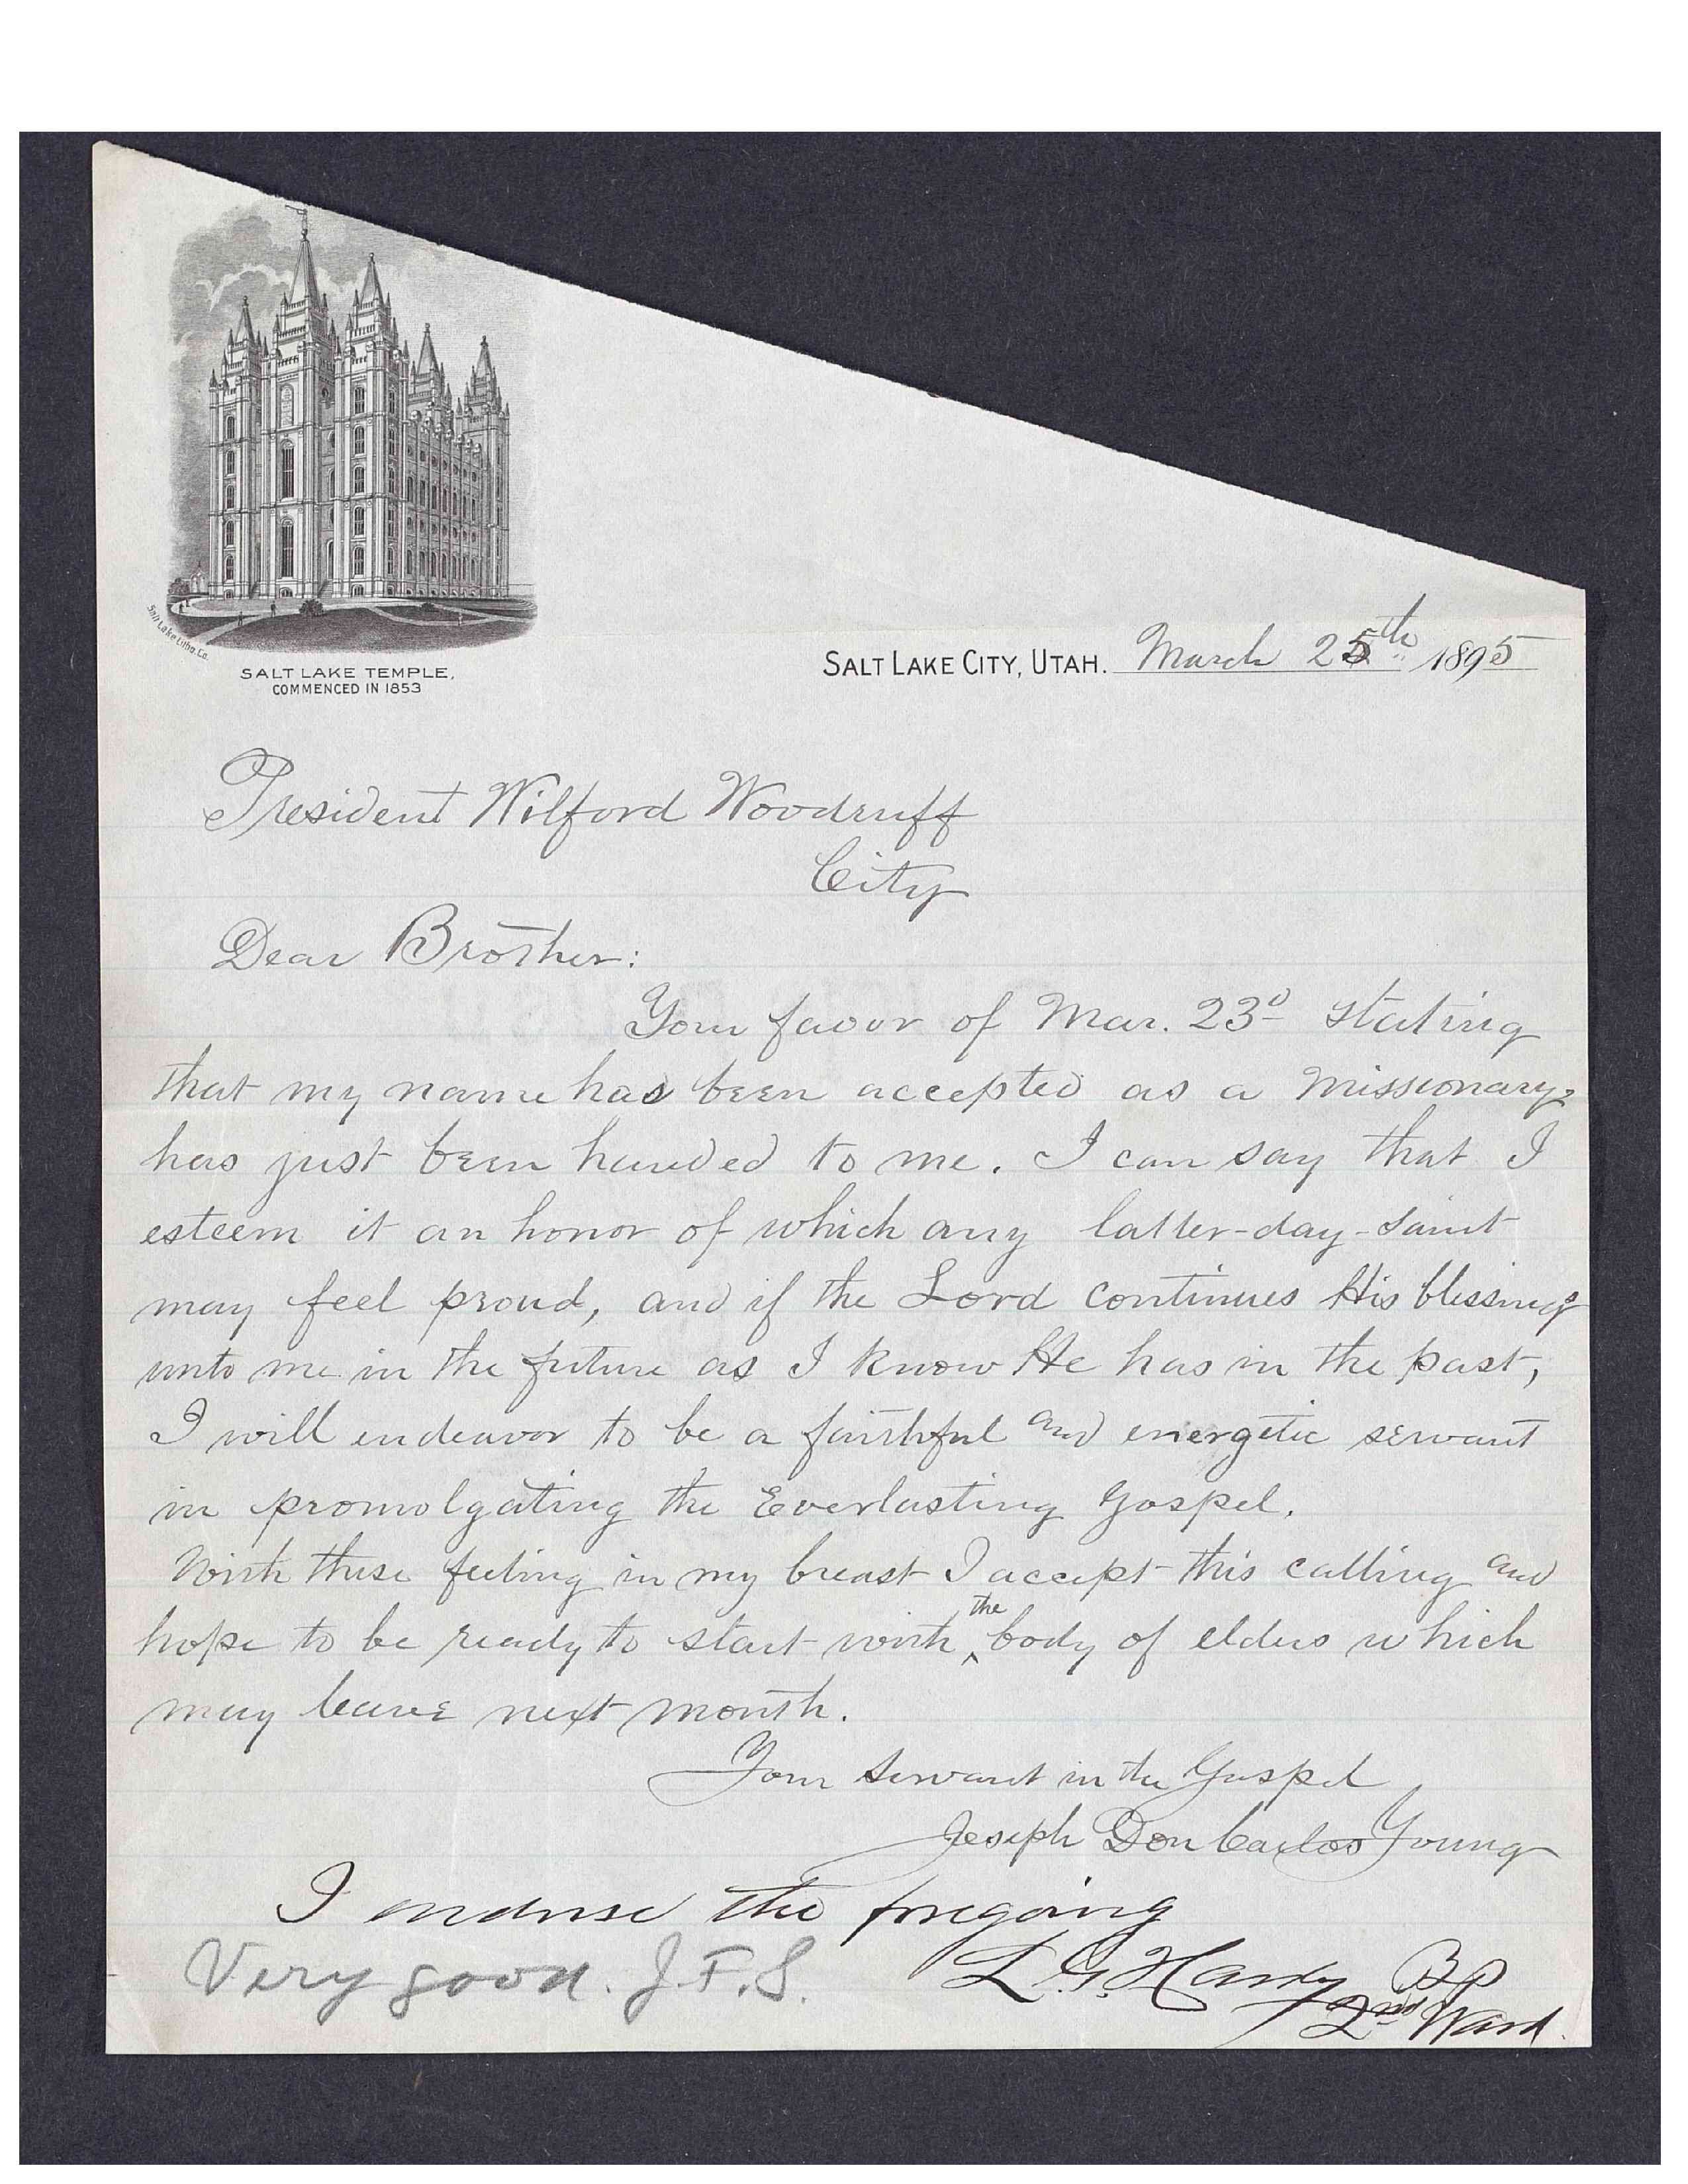 Salt Lake Litho. Co.
SALT LAKE TEMPLE,
COMMENCED IN 1853
SALT LAKE CITY, UTAH. March 25th 1895
President Wilford Woodruff
City
Dear Brother:
Your favor of Mar. 23d stating
that my name has been accepted as a missionary,
has just been handed to me. I can say that I
esteem it an honor of which any latter-day-saint
may feel proud, and if the Lord continues His blessings
unto me in the future as I know He has in the past,
I will endeavor to be a faithful and energetic servant
in promolgating the Everlasting Gospel.
With these feeling in my breast I accept this calling and
hope to be ready to start with ^the body of elders which
may leave next month.
Your servant in the Gospel
Joseph Don Carlos Young
I endorse the foregoing
Very good. J.F.S. L. G. Hardy BP
2nd Ward.